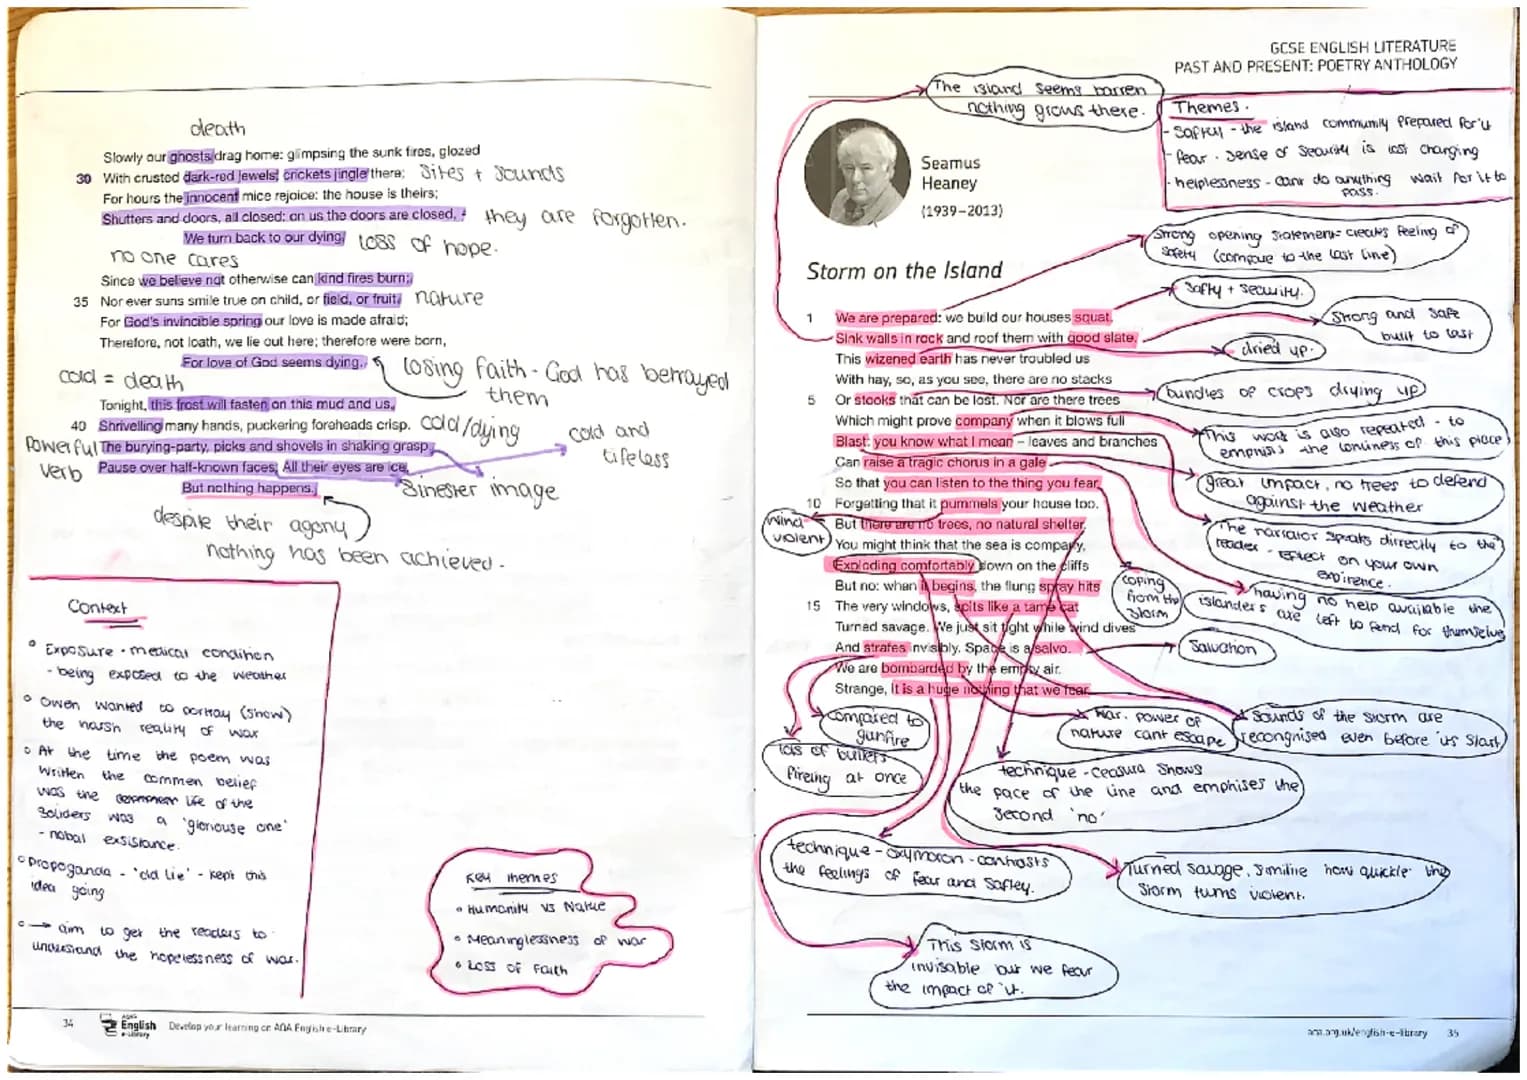 death
Slowly our ghosts drag home: glimpsing the sunk fires, glozed
30 With crusted dark-red jewels; crickets jingle there; Sites + Sounds
For hours the innocent mice rejoice: the house is theirs;
Shutters and doors, all closed: on us the doors are closed, - they are forgotten.
We turn back to our dying. loss of hope.
no one cares
Since we believe not otherwise can kind fires burn;
35 Nor ever suns smile true on child, or field, or fruit. nature
For God's invincible spring our love is made afraid;
Therefore, not loath, we lie out here; therefore were born,
For love of God seems dying. losing faith - God has betrayed them
cold = death
Tonight, this frost will fasten on this mud and us,
40 Shrivelling many hands, puckering foreheads crisp. cold/dying
Powerful verb
The burying-party, picks and shovels in shaking grasp,
Pause over half-known faces. All their eyes are ice, cold and lifeless
But nothing happens. Sinester image
despite their agony
nothing has been achieved.
Context
Exposure - medical condition
- being exposed to the weather
Owen wanted to portray (show)
the harsh reality of war
At the time the poem was
written the commen belief
was the life of the
Soliders was a 'gloriouse one'
- nobal exsistance.
Propoganda - 'old lie' - kept this
idea going
→ aim to get the readers to
understand the hopelessness of war.
Key themes
• Humanity vs Nature
• Meaninglessness of war
• Loss of Faith
34 AQA English e-Library Develop your learning on AQA English e-Library
GCSE ENGLISH LITERATURE
PAST AND PRESENT: POETRY ANTHOLOGY
The island seems barren
nothing grows there.
Themes.
- Saftey - the island community prepared for it
- fear - sense of security is lost changing
- helplessness - cant do anything wait for it to
pass.
Seamus
Heaney
(1939–2013)
Strong opening statement creats feeling of
safety (compare to the last line)
Storm on the Island
Safty + security.
1 We are prepared: we build our houses squat,
Sink walls in rock and roof them with good slate.
Strong and safe
built to last
This wizened earth has never troubled us
dried up.
With hay, so, as you see, there are no stacks
bundles of crops drying up
5 Or stooks that can be lost. Nor are there trees
Which might prove company when it blows full
This work is also repeated - to
emphisis the lonliness of this place
Blast: you know what I mean – leaves and branches
Can raise a tragic chorus in a gale
So that you can listen to the thing you fear
great impact, no trees to defend
against the weather
10 Forgetting that it pummels your house too.
But there are no trees, no natural shelter.
wind
violent
You might think that the sea is company,
The narrator speaks dirrectly to the
reader - reflect on your own
expirence.
Exploding comfortably down on the cliffs
But no: when it begins, the flung spray hits
coping
from the
storm
having no help available the
islanders are left to fend for themselves
15 The very windows, spits like a tame cat
Turned savage. We just sit tight while wind dives
And strafes invisibly. Space is a salvo.
Salvation
We are bombarded by the empty air.
Strange, it is a huge nothing that we fear.
compared to
gunfire
lots of bullets
fireing at once
war. power of
nature cant escape
Sounds of the storm are
recongnised even before its start
technique - ceasura shows
the pace of the line and emphises the
second 'no'
technique - oxymoron - contrasts
the feelings of fear and saftey.
Turned savage, similie how quickle the
storm turns violent.
This storm is
invisable but we fear
the impact of it.
aqa.org.uk/english-e-library 35